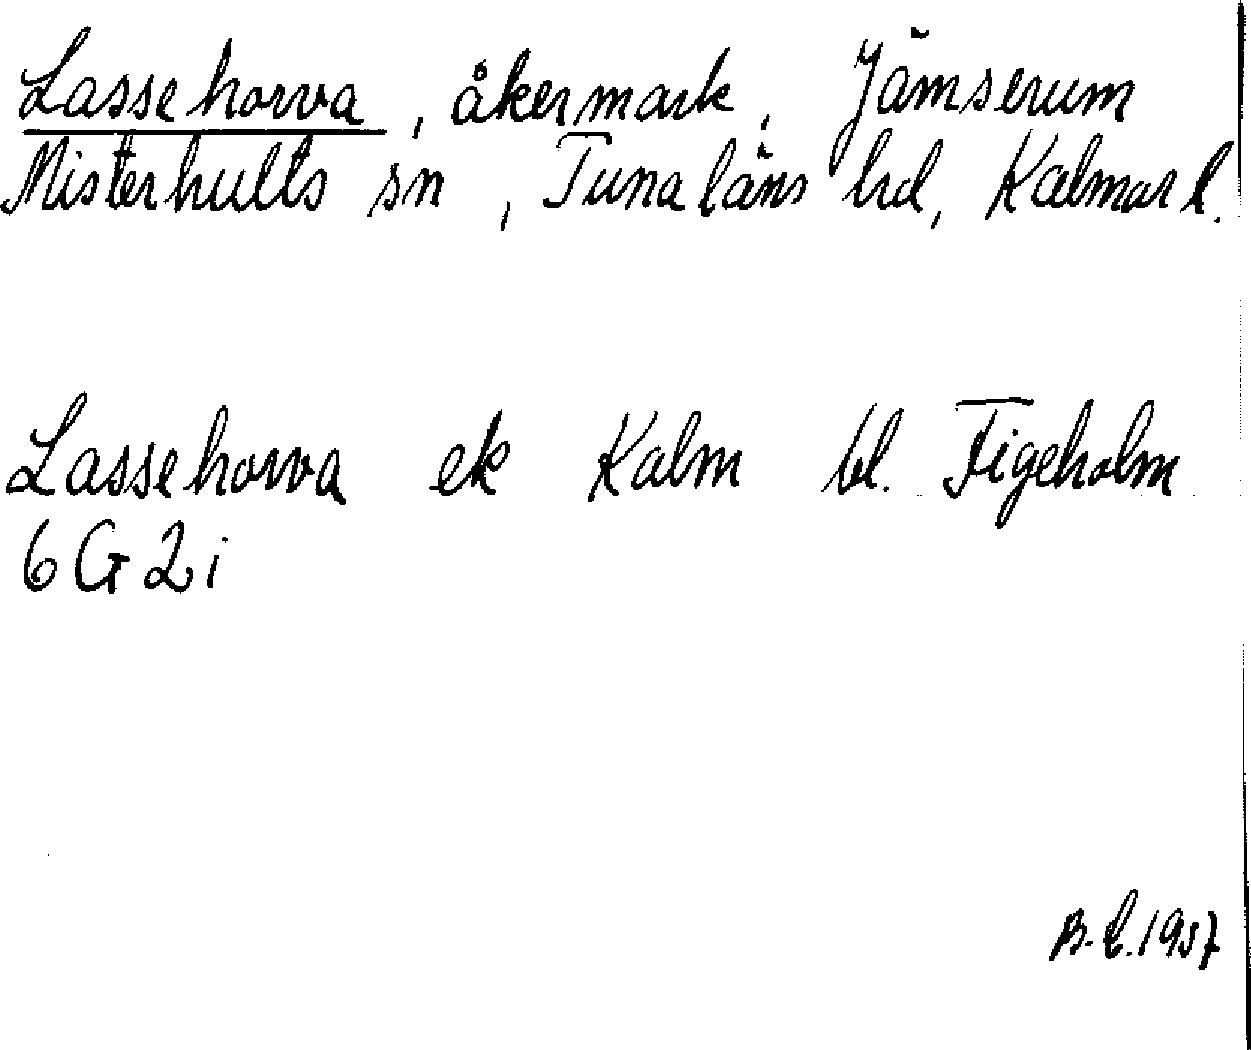 Lassehorva, åkermark, Jämserum
Misterhults sn, Tunaläns hd, Kalmar l.
Lassehorva ek Kalm bl. Figeholm
6G2i
B.L.1957